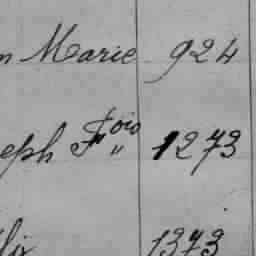 n Marie 924
eph Fois " 1273
lix 1373